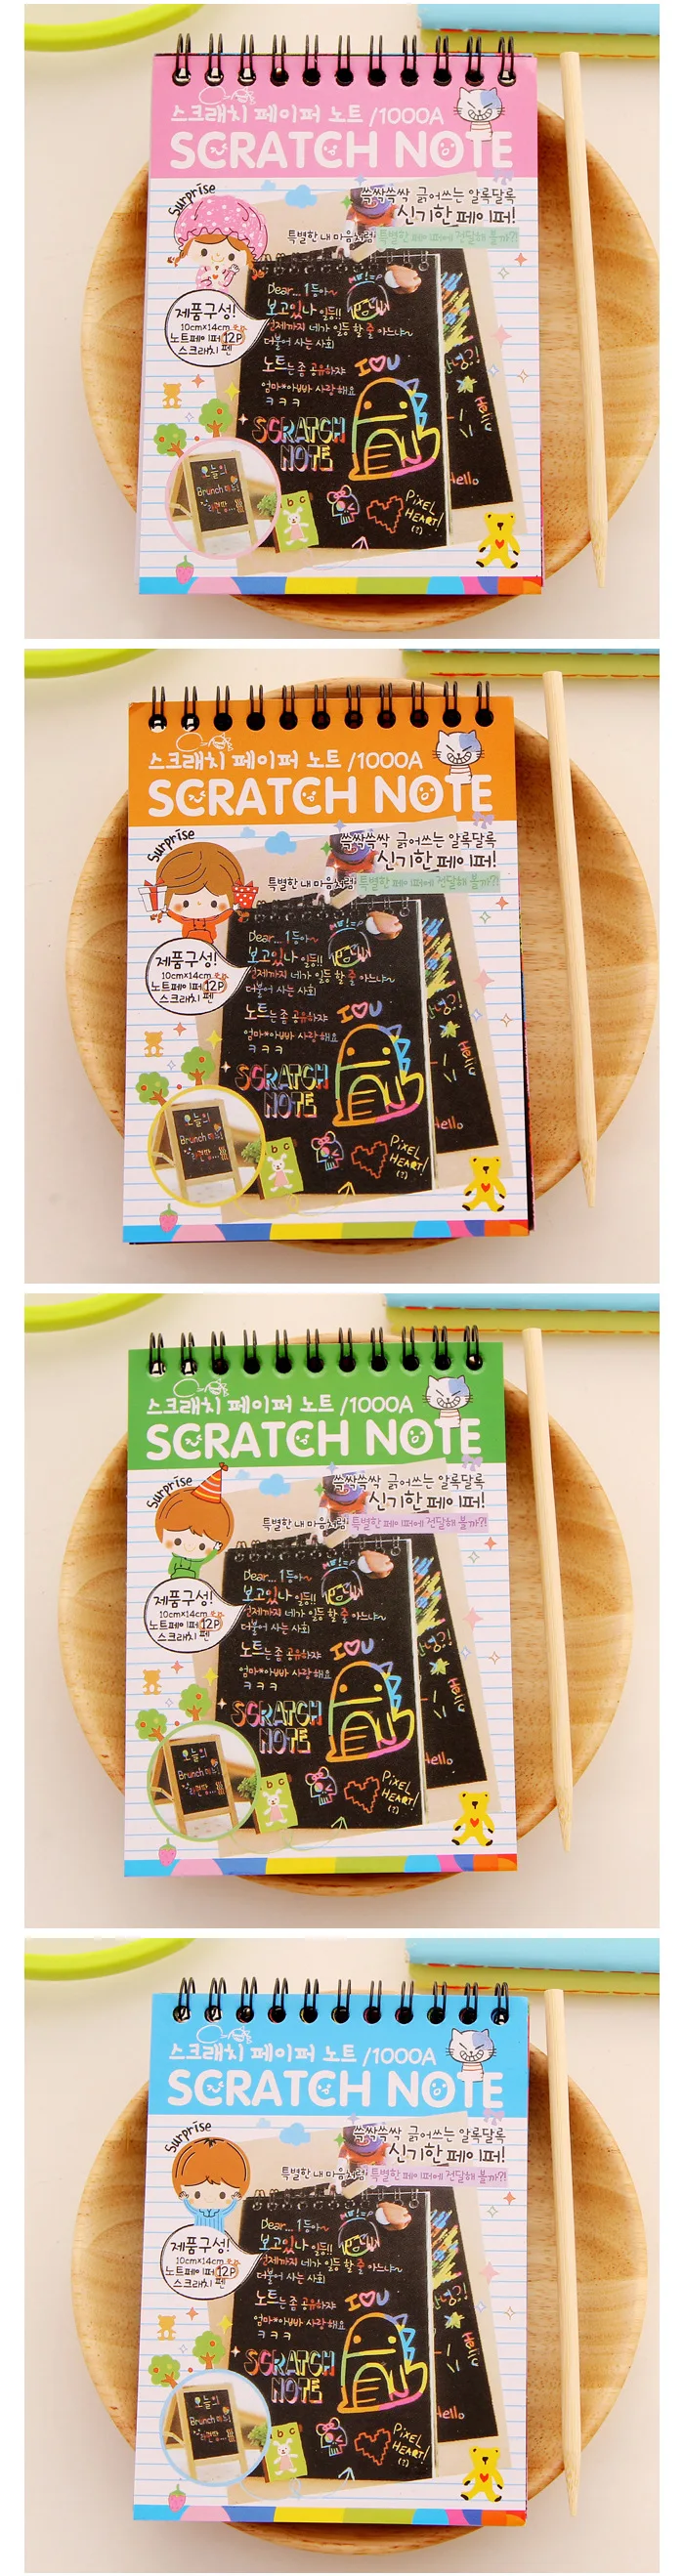 스크래치 페이퍼 노트 /1000A
SCRATCH NOTE
Surprise
쓱싹쓱싹 긁어쓰는 알록달록
신기한 페이퍼!
특별한 내 마음처럼! 특별한 페이퍼에 전달해 볼까?!
제품구성!
10cm×14cm
노트페이퍼 12P
스크래치 펜
Dear... 1등아~
보고있나 일등!!
언제까지 네가 일등 할 줄 아느냐~
더불어 사는 사회
노트는 좀 공유하쟈
엄마*아빠 사랑해요
ㅋㅋㅋ
I♡U
SCRATCH
NOTE
Hello
Hello
오늘의
Brunch 메뉴!
b c
PiXEL
HEART!
스크래치 페이퍼 노트 /1000A
SCRATCH NOTE
Surprise
쓱싹쓱싹 긁어쓰는 알록달록
신기한 페이퍼!
특별한 내 마음처럼! 특별한 페이퍼에 전달해 볼까?!
제품구성!
10cm×14cm
노트페이퍼 12P
스크래치 펜
Dear... 1등아~
보고있나 일등!!
언제까지 네가 일등 할 줄 아느냐~
더불어 사는 사회
노트는 좀 공유하쟈
엄마*아빠 사랑해요
ㅋㅋㅋ
I♡U
SCRATCH
NOTE
Hello
Hello
오늘의
Brunch 메뉴!
b c
PiXEL
HEART!
스크래치 페이퍼 노트 /1000A
SCRATCH NOTE
Surprise
쓱싹쓱싹 긁어쓰는 알록달록
신기한 페이퍼!
특별한 내 마음처럼! 특별한 페이퍼에 전달해 볼까?!
제품구성!
10cm×14cm
노트페이퍼 12P
스크래치 펜
Dear... 1등아~
보고있나 일등!!
언제까지 네가 일등 할 줄 아느냐~
더불어 사는 사회
노트는 좀 공유하쟈
엄마*아빠 사랑해요
ㅋㅋㅋ
I♡U
SCRATCH
NOTE
Hello
Hello
오늘의
Brunch 메뉴!
b c
PiXEL
HEART!
스크래치 페이퍼 노트 /1000A
SCRATCH NOTE
Surprise
쓱싹쓱싹 긁어쓰는 알록달록
신기한 페이퍼!
특별한 내 마음처럼! 특별한 페이퍼에 전달해 볼까?!
제품구성!
10cm×14cm
노트페이퍼 12P
스크래치 펜
Dear... 1등아~
보고있나 일등!!
언제까지 네가 일등 할 줄 아느냐~
더불어 사는 사회
노트는 좀 공유하쟈
엄마*아빠 사랑해요
ㅋㅋㅋ
I♡U
SCRATCH
NOTE
Hello
Hello
오늘의
Brunch 메뉴!
b c
PiXEL
HEART!